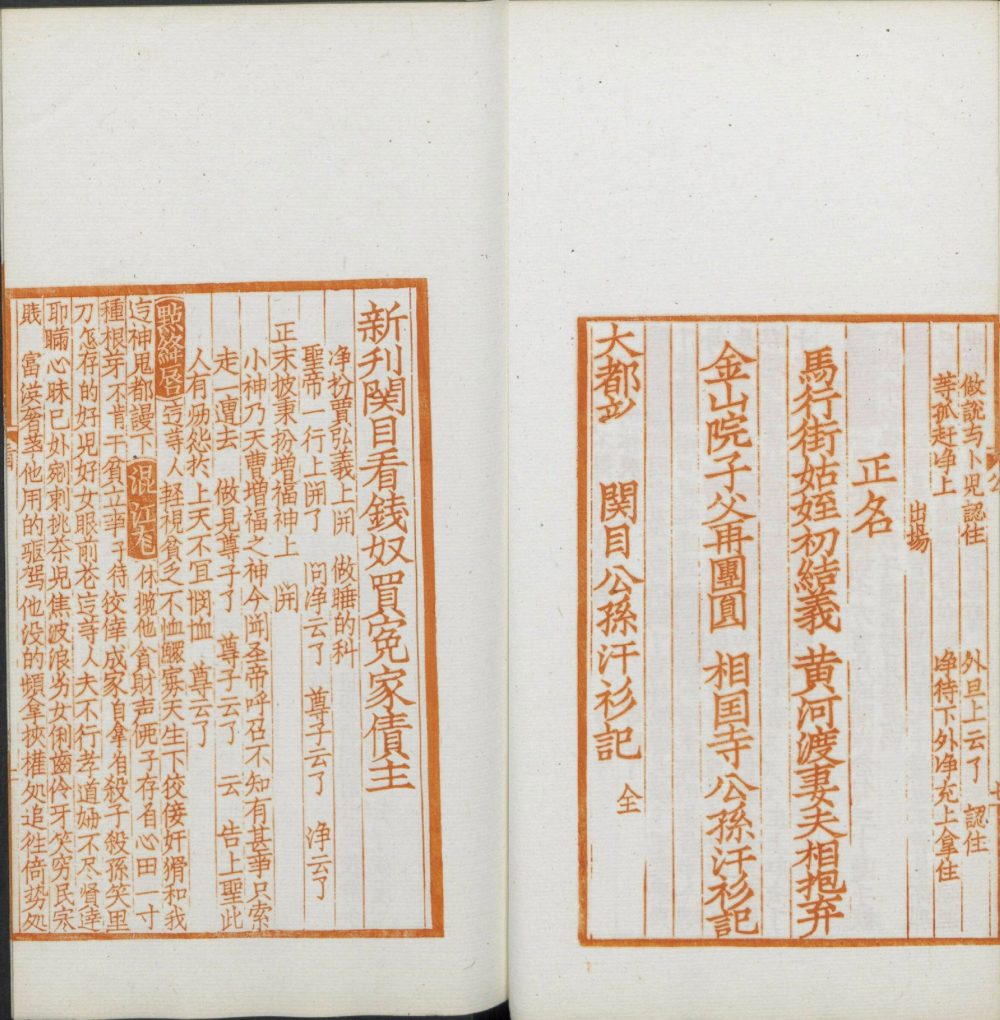 做說与卜児認住　外旦上云了　認住
等孤赶净上　净待下外净充上拿住
出場
正名
馬行街姑姪初結義　黄河渡妻夫相抱弃
金山院子父再團圓　相国寺公孫汗衫記
大都　関目公孫汗衫記　全
新刋関目看錢奴買寃家債主
净扮賈弘義上開　做睡的科
聖帝一行上開了　问净云了　尊子云了　净云了
正末披秉扮増福神上　開
小神乃天曹増福之神今聞圣帝呼召不知有甚事只索
走一遭去　做見尊子了　尊子云了　云　告上聖此
人有㑇怨於上天不宜憫恤　尊云了
點絳唇　这等人輕視貧乏不恤鰥寡天生下佼倿奸猾和我
这神鬼都謾下　混江龙　休攬他貪財声便子存有心田一寸
種根芽不肯干貧立事子待佼倖成家自拿着殺子殺孫笑里
刀怎存的好児好女眼前花这等人夫不行孝道妯不尽賢達
耶瞞心昧己外宛剌挑茶児焦波浪劣女俐齒伶牙笑穷民衣
賎　富洪奢莖他用的驱駕他没的頻拿挾權処追徃倚势処